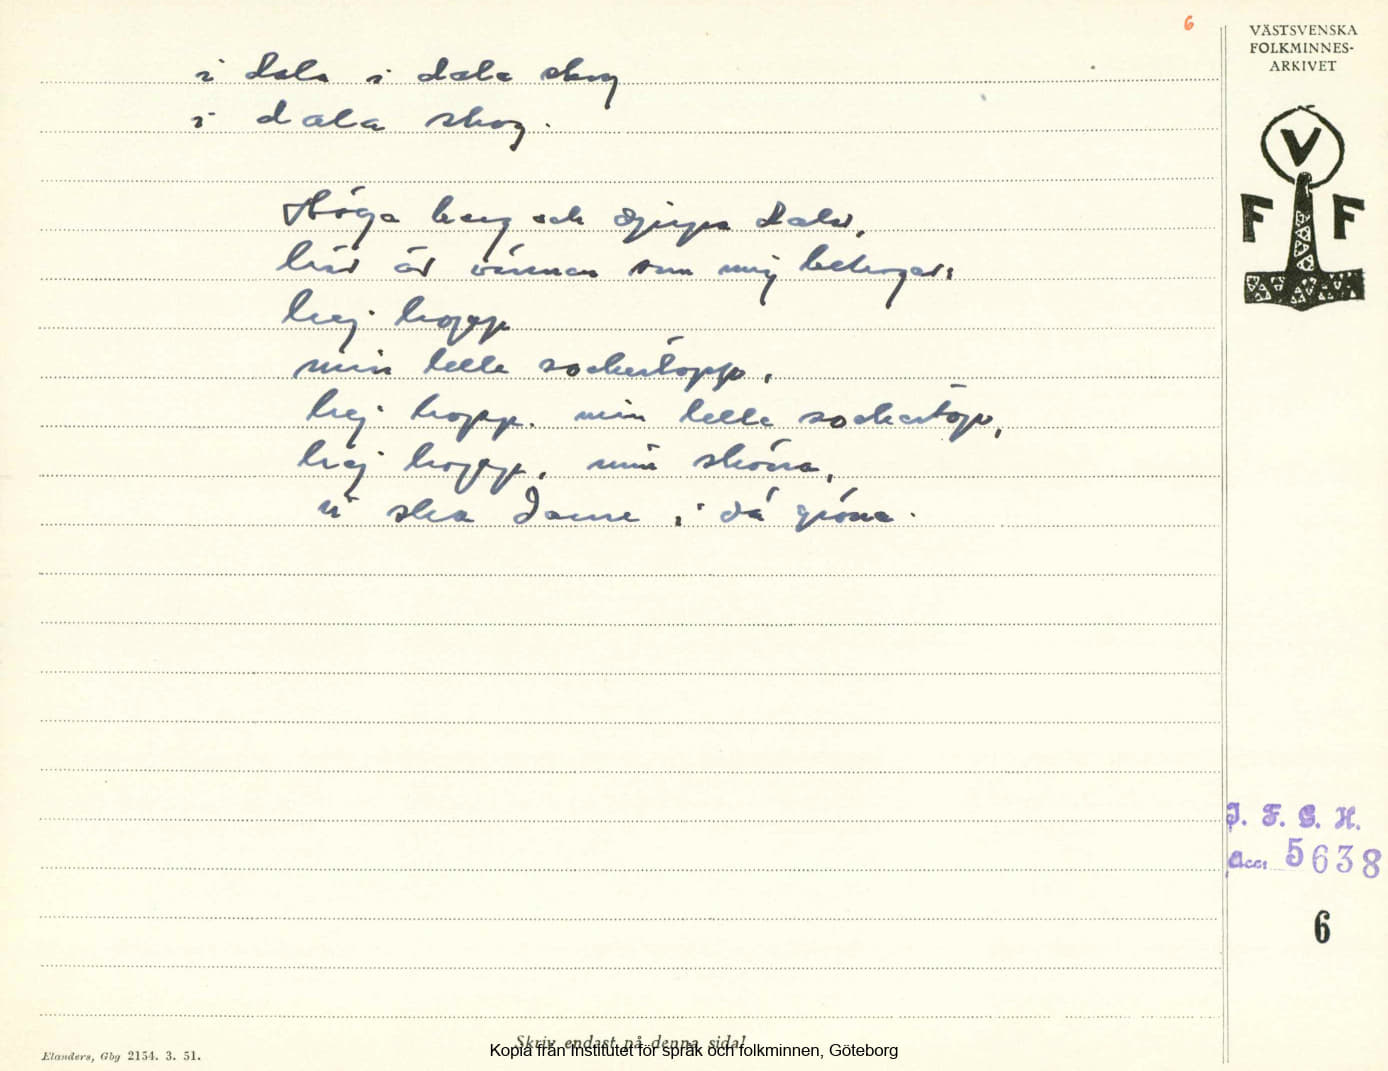 6
VÄSTSVENSKA
FOLKMINNES-
ARKIVET
V
F F
i dala i dala skog
i dala skog.
Höga berg och djupa dalar,
här är vännen som mig behagar:
hej hopp
min lelle sockertopp,
hej hopp. min lelle sockertopp,
hej hopp, min sköna,
vi ska danse i då gröna.
I. F. G. H.
Acc: 5638
6
Skriv endast på denna sida!
Kopia från Institutet för språk och folkminnen, Göteborg
Elanders, Gbg 2154. 3. 51.